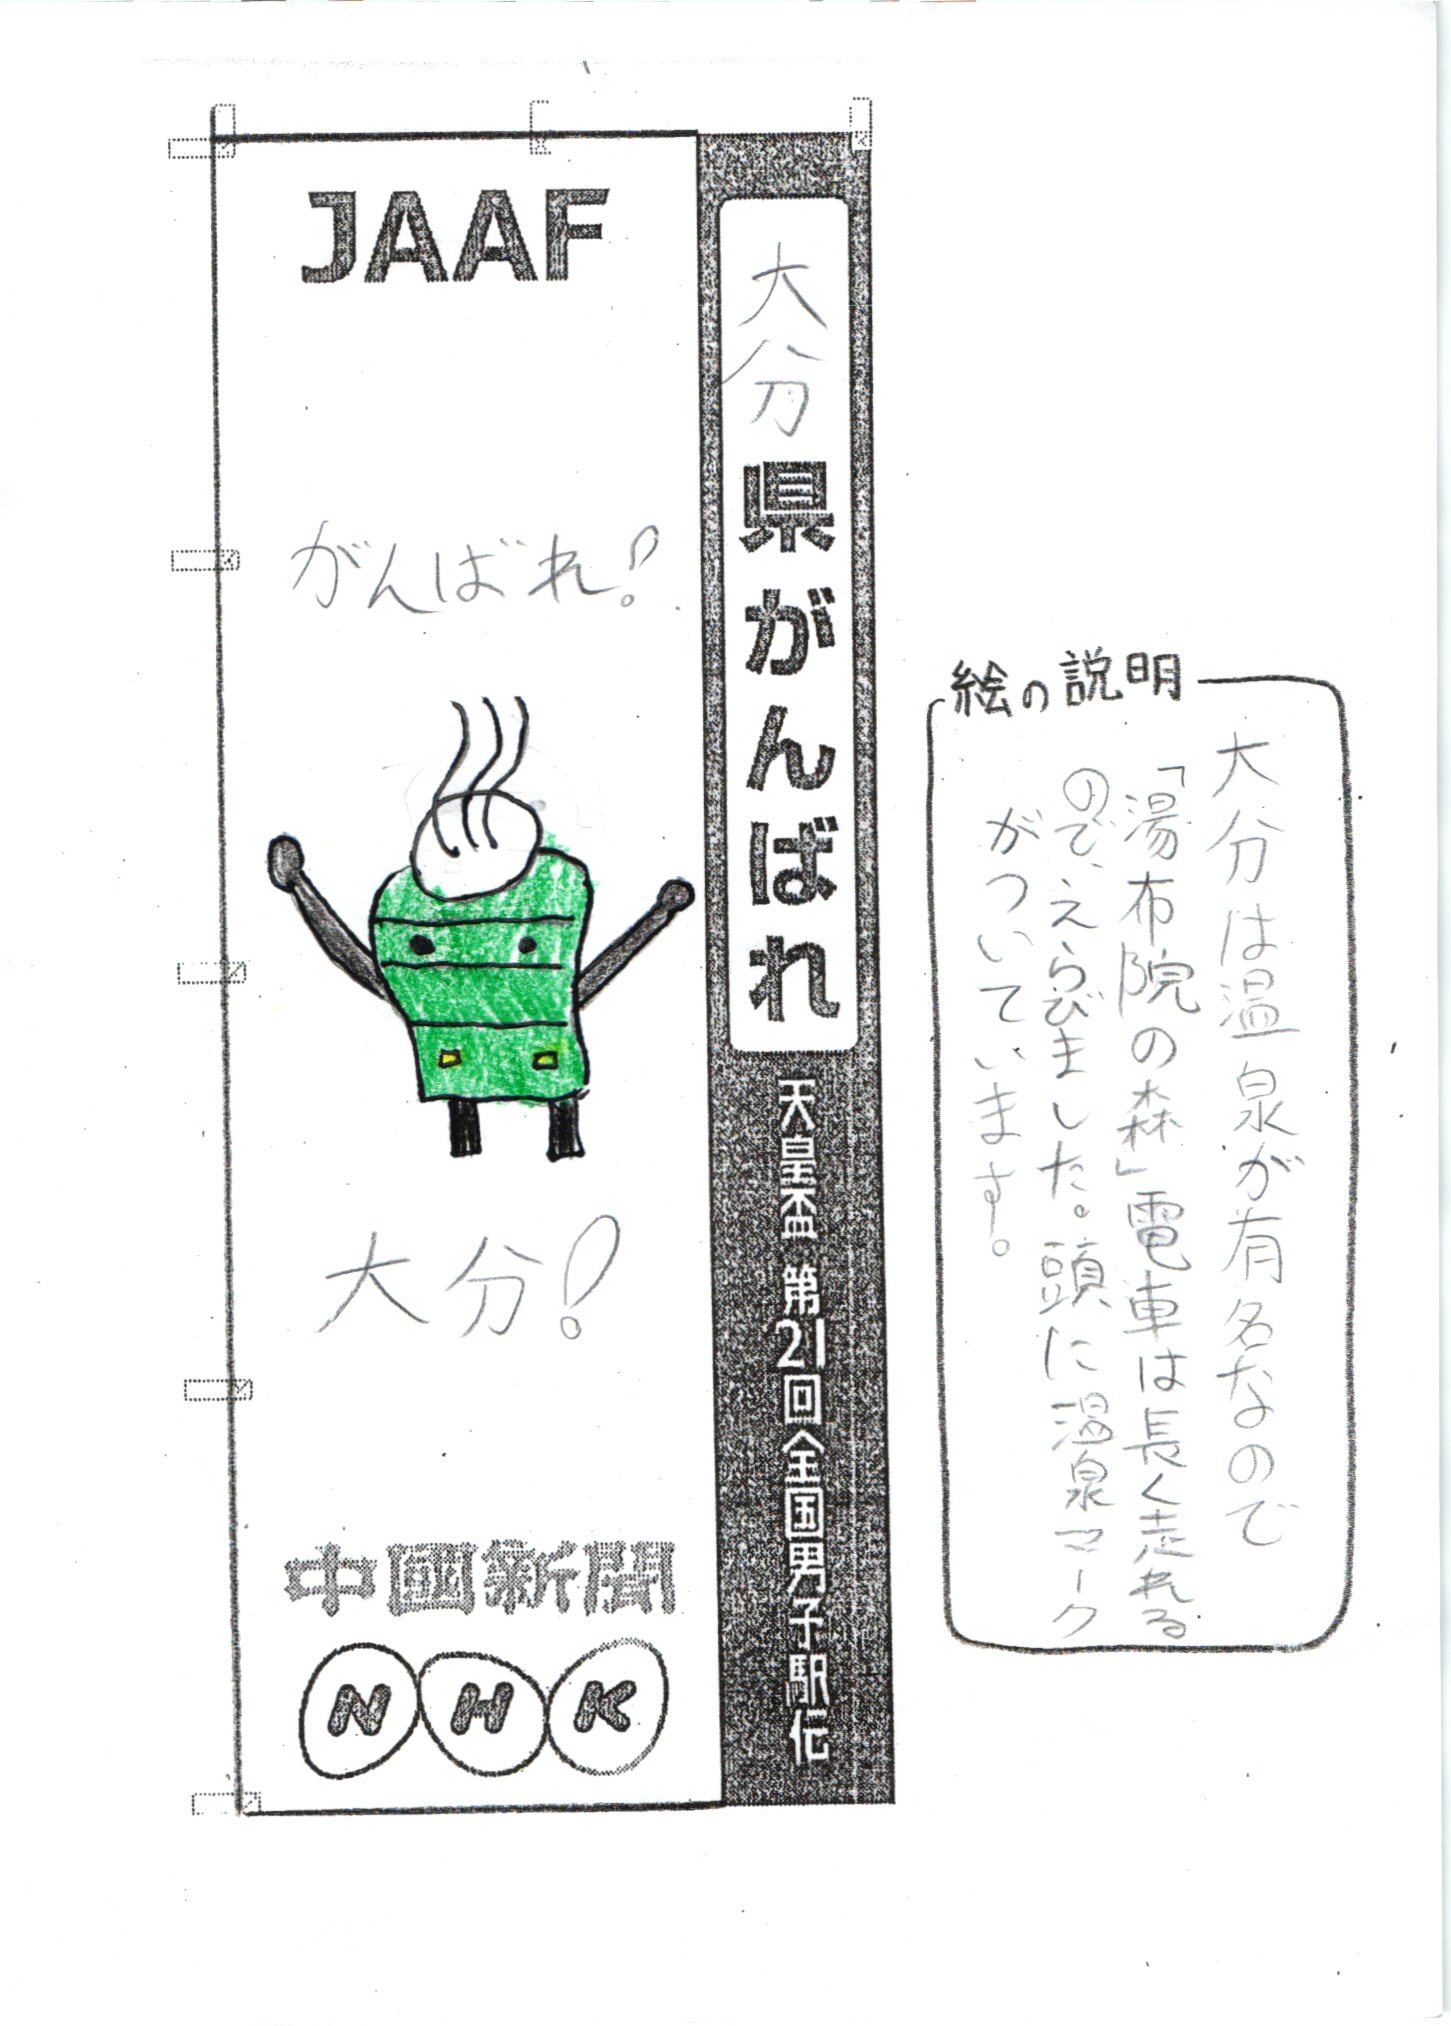 JAAF
がんばれ!
大分!
中國新聞
NHK
大分県がんばれ
天皇盃 第21回全国男子駅伝
絵の説明
大分は温泉が有名なので
「湯布院の森」電車は長く走れる
ので、えらびました。頭に温泉マーク
がついています。